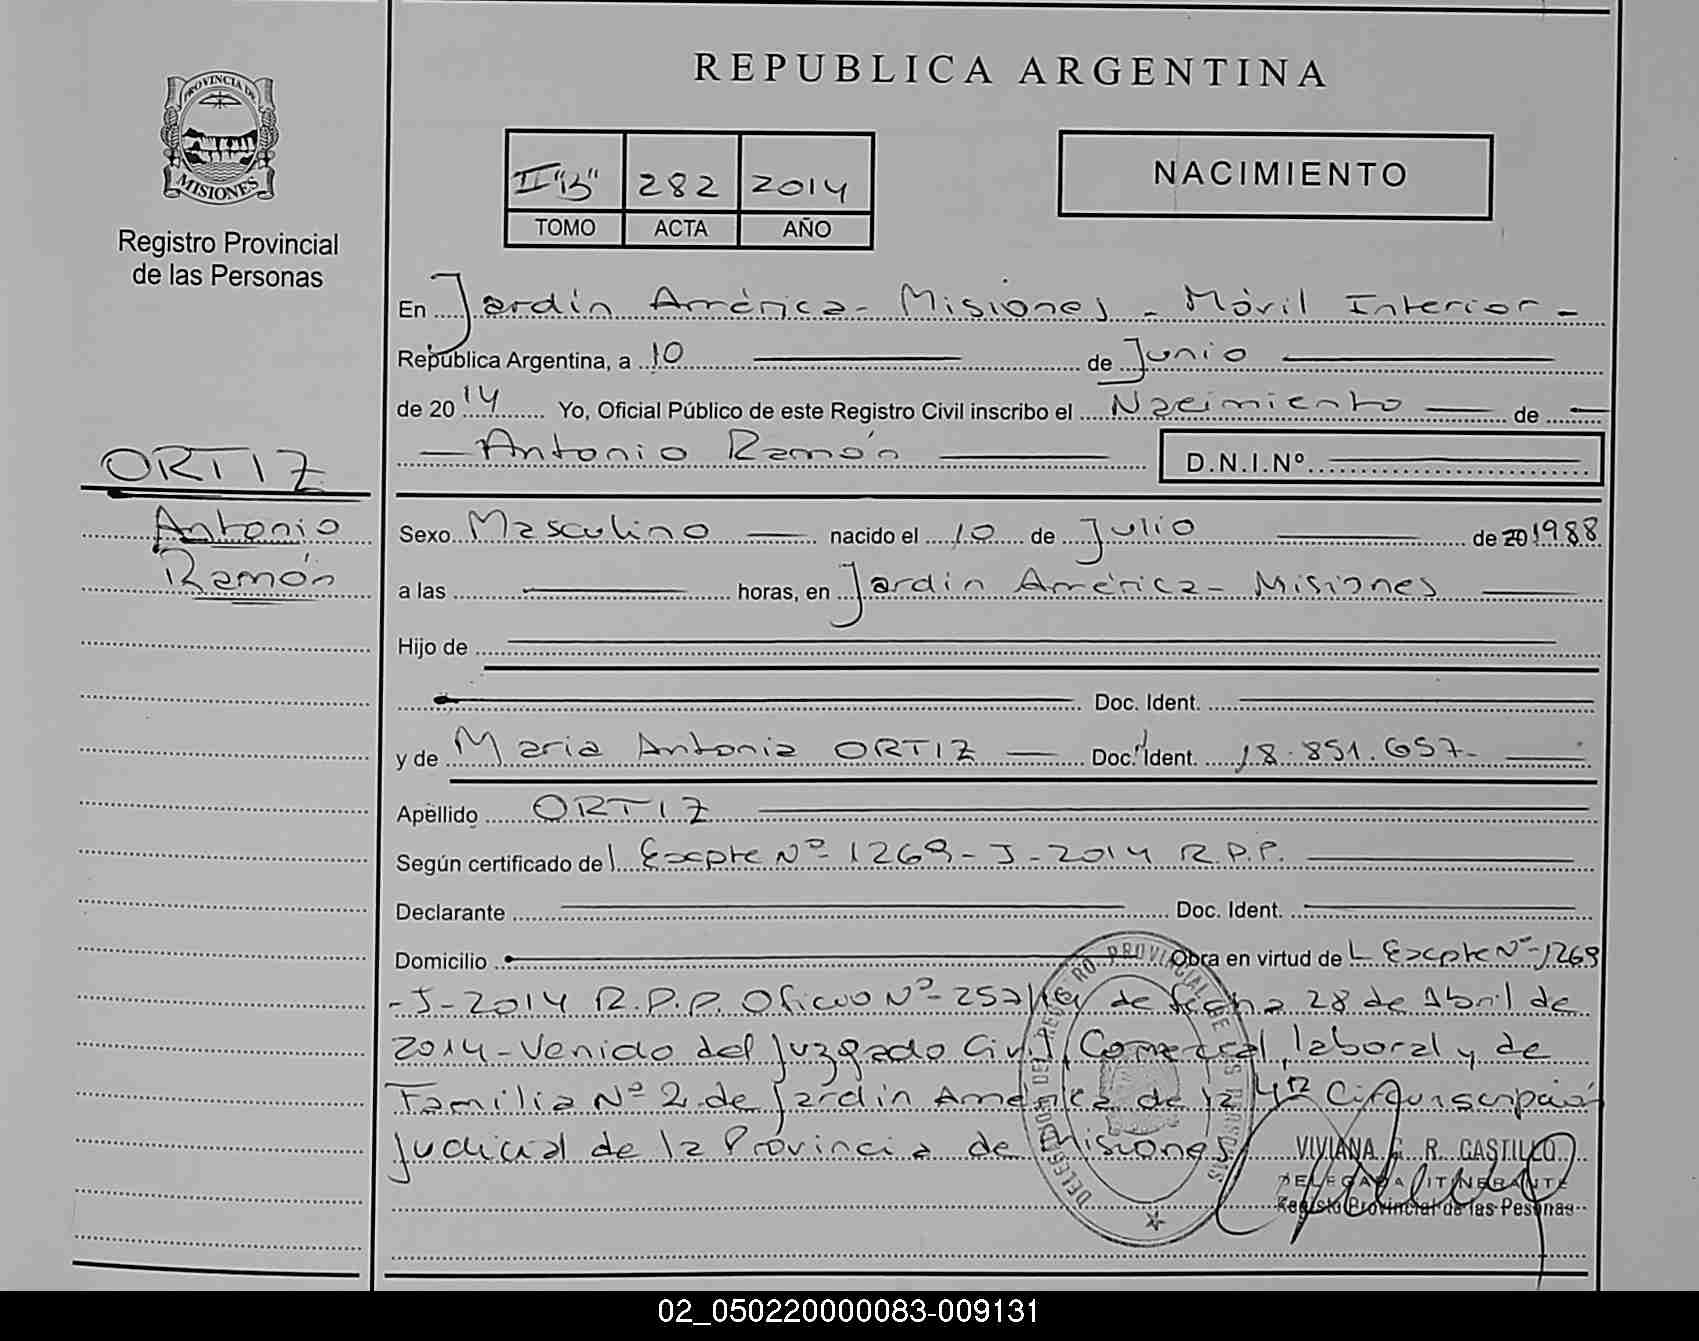 REPUBLICA ARGENTINA
PROVINCIA DE
MISIONES
Registro Provincial
de las Personas
II "B" 282 2014
TOMO ACTA AÑO
NACIMIENTO
En Jardín América - Misiones - Móvil Interior -
República Argentina, a 10 de Junio
de 2014 Yo, Oficial Público de este Registro Civil inscribo el Nacimiento de
Antonio Ramón D.N.I.Nº
ORTIZ
Antonio
Ramón
Sexo Masculino nacido el 10 de Julio de 20 1988
a las horas, en Jardín América - Misiones
Hijo de
Doc. Ident.
y de Maria Antonia ORTIZ Doc. Ident. 18.851.657-
Apellido ORTIZ
Según certificado de l Excpte Nº 1269-J-2014 R.P.P.
Declarante Doc. Ident.
Domicilio Obra en virtud de L Excpte Nº 1269
-J-2014 R.P.P. Oficio Nº de fecha 28 de Abril de
2014 - Venido del Juzgado Civil, Comercial, laboral y de
Familia Nº 2 de Jardín América de la 4ta Circunscripción
Judicial de la Provincia de Misiones
DELEGACION DEL REGISTRO PROVINCIAL DE LAS PERSONAS
VIVIANA G. R. CASTILLO
DELEGADA ITINERANTE
Registro Provincial de las Pesonas
02_050220000083-009131